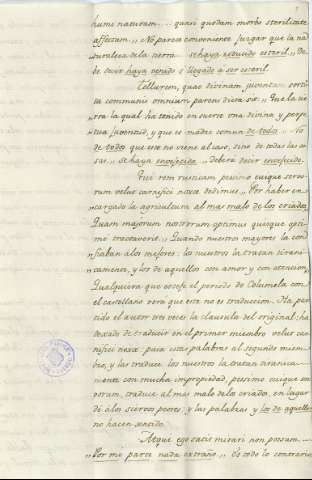 humi naturam.... quasi quodam morbo sterilitate
affectum. „ No parece conveniente juzgar que la na
turaleza de la tierra - se haya reducido esteril. „ De
be decir haya venido o llegado a ser esteril.
Tellurem, quae divinam juventam sorti
ta communis omnium parens dicta sit „ Que la tie
rra la qual ha tenido en suerte una divina y perpe
tua juventud, y que es madre comun de todo. - No
de todos que este no viene al caso, sino de todas las co
sas. „ se haya envejecida „ deberá decir envejecido.
Qui rem rusticam pessimo cuique servo-
rum velut carnifici noxae dedimus „ Por haber en
cargado la agricultura al mas malo de los criados.
Quam majorum nostrorum optimus quisque opti-
me tractaverit. „ Quando nuestros mayores la con
fiaban a los mejores: los nuestros la tratan tirani-
camente, y los de aquellos con amor y con atencion.
Qualquiera que coteje el periodo de Columela con
el castellano vera que esta no es traduccion. Ha par
tido el autor tres veces la clausula del original; ha
dexado de traducir en el primer miembro velut car
nifici noxae pasa estas palabras al segundo miem
bro, y las traduce, los nuestros la tratan tiranica-
mente con mucha impropiedad, pessimo cuique ser
vorum, traduce al mas malo de los criados, en lugar
de á los siervos peores; y las palabras y los de aquellos
no hacen sentido.
Atque ego satis mirari non possum
„ Por me parte nada extraño „ Es todo lo contrario